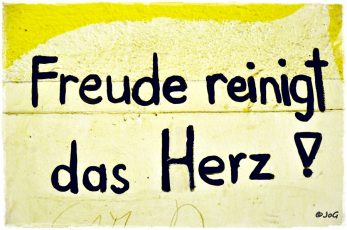 Freude reinigt
das Herz !
©JoG